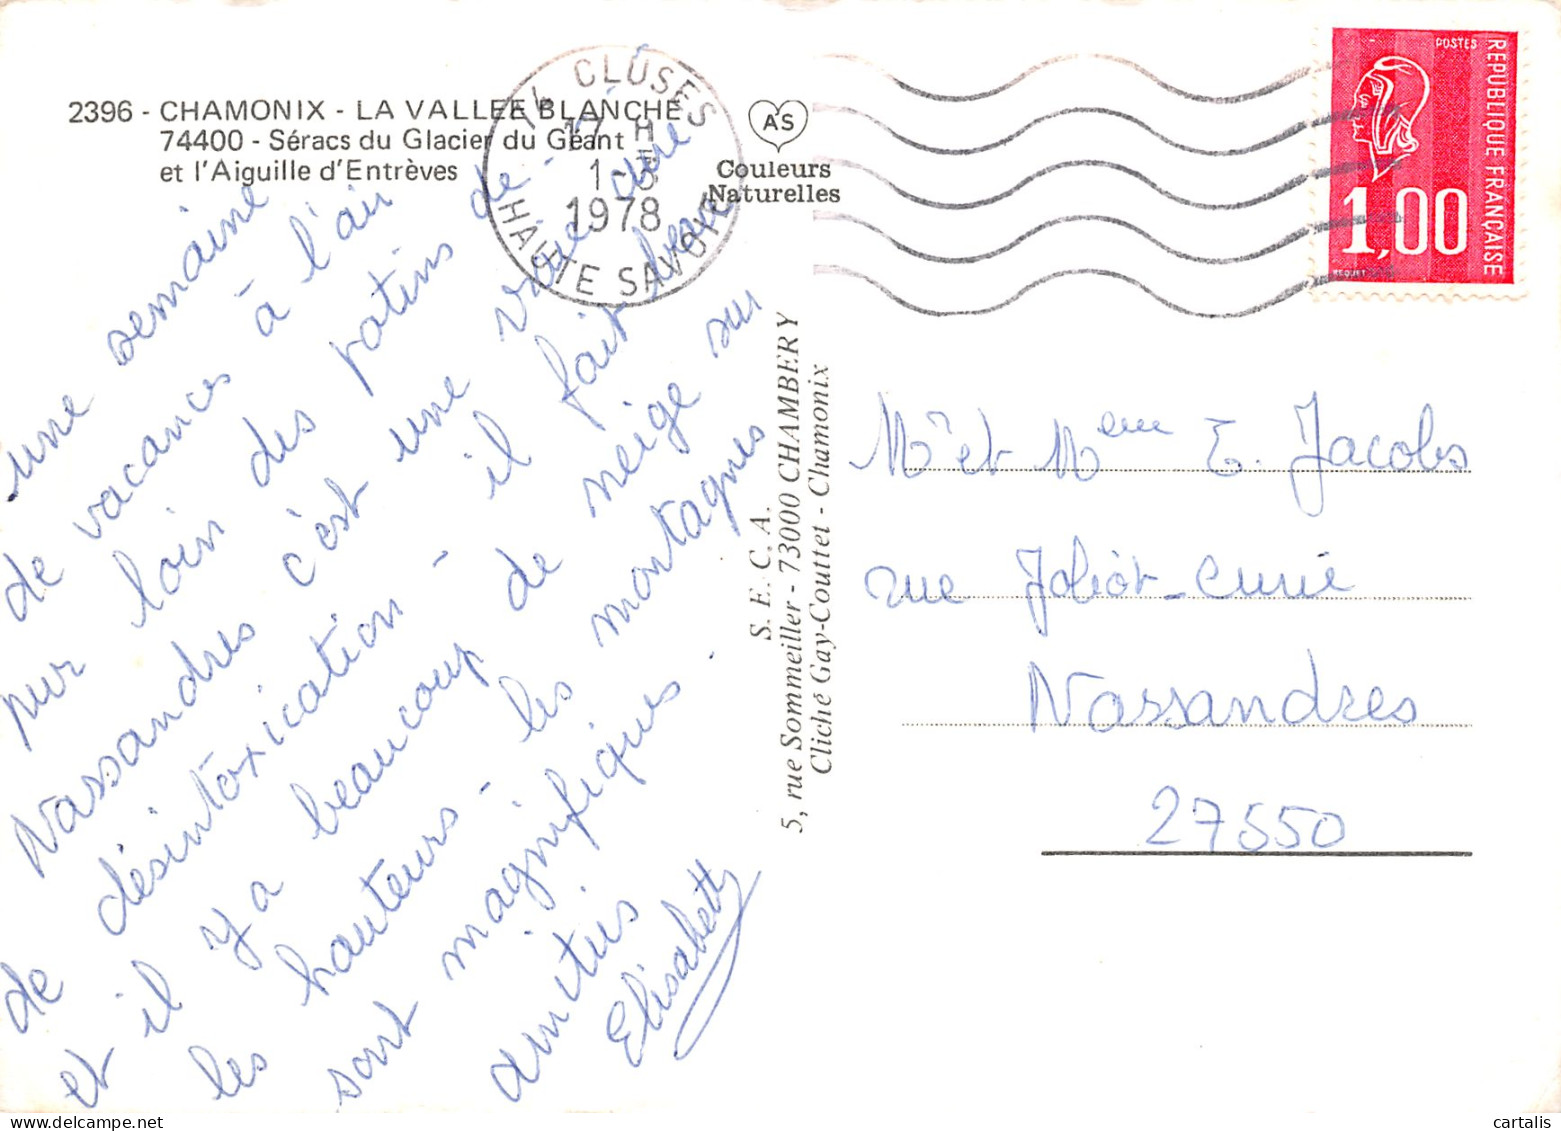 2396 - CHAMONIX - LA VALLEE BLANCHE
74400 - Séracs du Glacier du Géant
et l'Aiguille d'Entrèves
74 CLUSES
17 H
1-3
1978
HAUTE SAVOIE
AS
Couleurs
Naturelles
POSTES
REPUBLIQUE FRANÇAISE
1,00
BEQUET
une semaine
de vacances à l'air
pur loin des patins de
Nassandres c'est une vraie cure
de désintoxication - il fait beau
et il y a beaucoup de neige sur
les hauteurs - les montagnes
sont magnifiques.
amitiés
Elisabeth
S. E. C. A.
5, rue Sommeiller - 73000 CHAMBERY
Cliché Gay-Couttet - Chamonix
Mr et Mme E. Jacobs
rue Joliot-Curie
Nassandres
27550
www.cartalis.com
cartalis